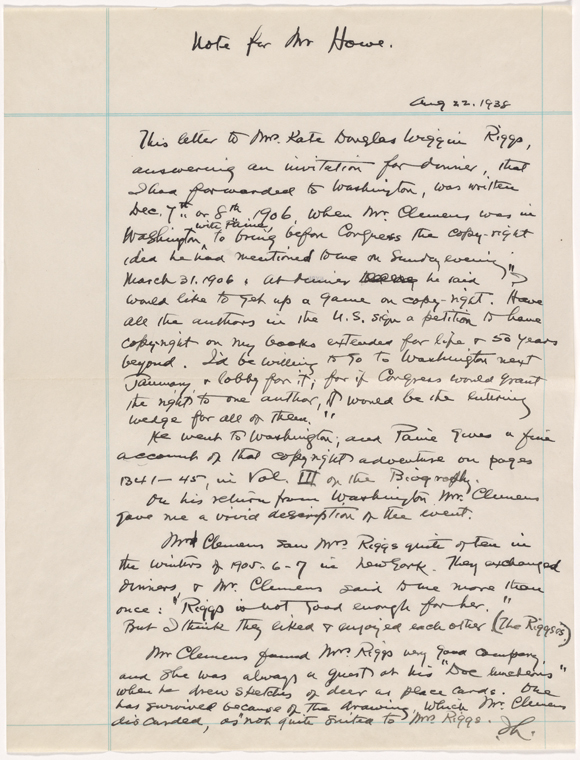 Note for Mr Howe.
Aug 22. 1938
This letter to Mrs. Kate Douglas Wiggin Riggs,
answering an invitation for dinner, that
I had forwarded to Washington, was written
Dec. 7th or 8th 1906, when Mr. Clemens was in
with Paine,
Washington, to bring before Congress the copy-right
idea he had mentioned to me on Sunday evening
March 31. 1906 & at dinner he said "I
would like to get up a game on copy-right. Have
all the authors in the U.S. sign a petition to have
copyright on my books extended for life & 50 years
beyond. I'd be willing to go to Washington next
January & lobby for it; for if Congress would grant
the right to one author, it would be the entering
wedge for all of them."
He went to Washington, and Paine gives a fine
account of that copyright adventure on pages
1341-45, in Vol. III of the Biography.
On his return from Washington Mr. Clemens
gave me a vivid description of the event.
Mr Clemens saw Mrs Riggs quite often in
the winters of 1905-6-7 in New York. They exchanged
dinners, & Mr. Clemens said to me more than
once: "Riggs is not good enough for her."
But I think they liked & enjoyed each other (The Riggses.)
Mr Clemens found Mrs. Riggs very good company,
and she was always a guest at his "Doe luncheons"
when he drew sketches of deer as place cards. One
has survived because of the drawing, which Mr. Clemens
discarded, as not quite suited to Mrs Riggs.